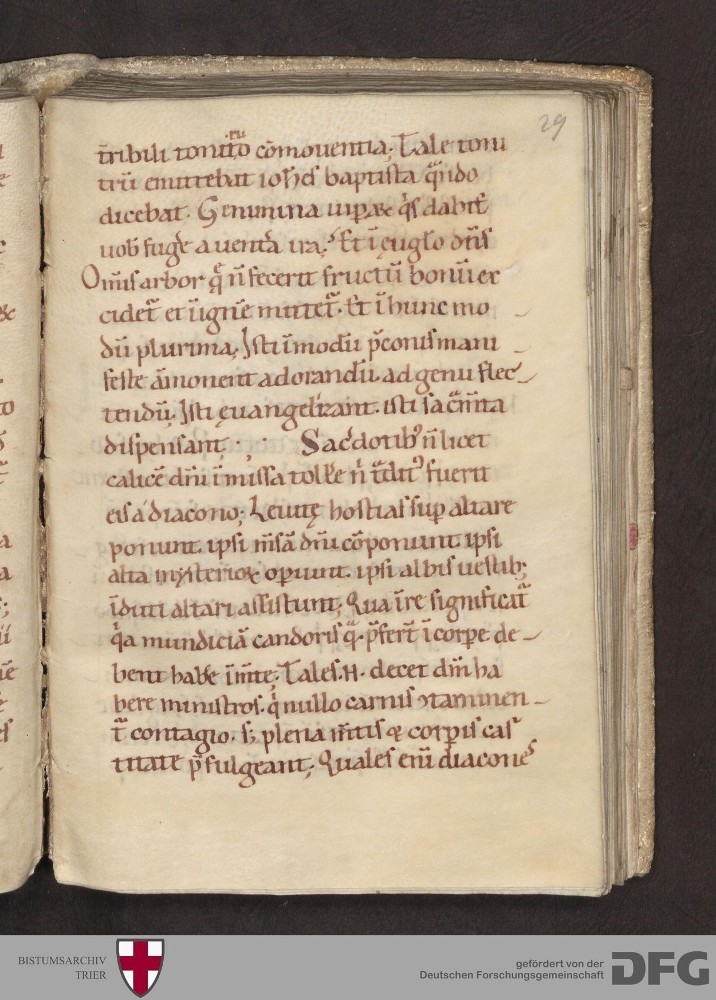 29
t̄ribili tonit̾o cōmouentia; Tale toni
trū emittebat ioh̄s baptista qͣndo
dicebat. Genimina uiꝑaꝝ qͥs dabit̾
uob fuge a uent̾a ira; Et ī euglo dn̄s
Om̄is arbor qͣ n̄ fecerit fructū bonū ex
cidet̾ et ī ignē mittet̾. Et ī hunc mo
dū plurima; Isti īmodū p̄conis mani
feste āmonent adorandū. ad genu flec
tendū; Isti ęuangelizant. isti sacm̄ta
dispensant; Sacdotibꝰ n̄ licet
calicē dn̄i ī missa tolle n̄ t̾ditꝰ fuerit
eis a diacono; Leuitę hostias sup altare
ponunt. ipsi m̄sā dn̄i cōponunt ipsi
alta mysterioꝝ operiunt. ipsi albis uestib;
īduti altari assistunt; Qua ī re significat̾
qͣa mundiciā candoris qͣ p̄fert ī corpe de
bent habe īm̄te; Tales .H. decet dn̄m ha
bere ministros. qͥ nullo carnis ꝯtaminen
t̾ contagio. s; plena m̄tis & corpis cas
titate p̄fulgeant; Quales eni diacones
BISTUMSARCHIV
TRIER
gefördert von der
Deutschen Forschungsgemeinschaft
DFG